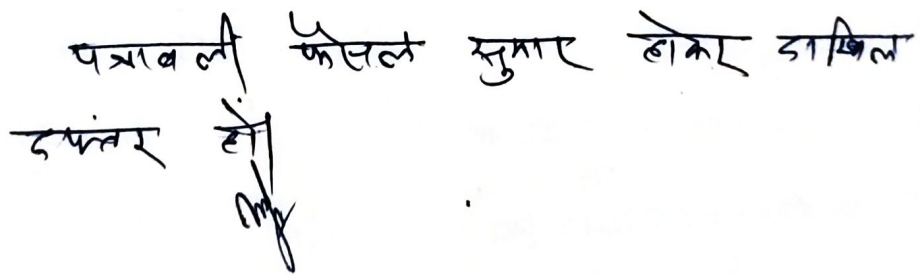 पत्रावली फैसल सुमार होकर दाखिल
दफ्तर हो।